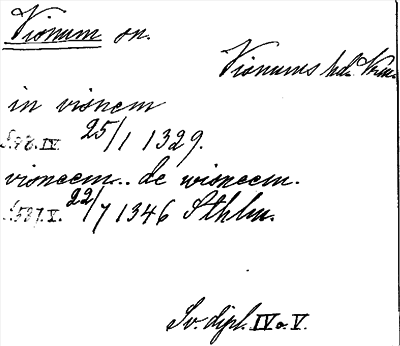 Vionum sn.
Vionums hd.
in visnem
25/1 1329.
visneem.. de wisneem.
22/7 1346 Sthlm.
Sv. dipl. IV o. V.